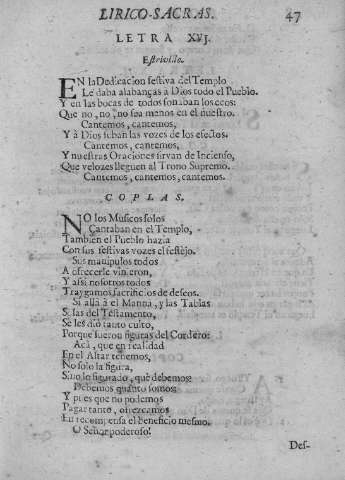 LIRICO-SACRAS. 47
LETRA XVJ.
Estrivillo.
EN la Dedicacion festiva del Templo
Le daba alabanças a Dios todo el Pueblo.
Y en las bocas de todos sonaban los ecos:
Que no, no, no sea menos en el nuestro.
Cantemos, cantemos,
Y à Dios suban las vozes de los efectos.
Cantemos, cantemos,
Y nuestras Oraciones sirvan de Incienso,
Que velozes lleguen al Trono Supremo.
Cantemos, cantemos, cantemos.
COPLAS.
NO los Musicos solos
Cantaban en el Templo,
Tambien el Pueblo hazia
Con sus festivas vozes el festejo.
Sus manipulos todos
A ofrecerle vinieron,
Y assi nosotros todos
Traygamos sacrificios de deseos.
Si allà à el Manna, y las Tablas
Si las del Testamento,
Se les diò tanto culto,
Porque fueron figuras del Cordero:
Acà, que en realidad
En el Altar tenemos,
No solo la figura,
Sino lo figurado, què debemos?
Debemos quanto somos:
Y pues que no podemos
Pagar tanto, ofrezcamos
En recompensa el beneficio mesmo.
O Señor poderoso!
Des-